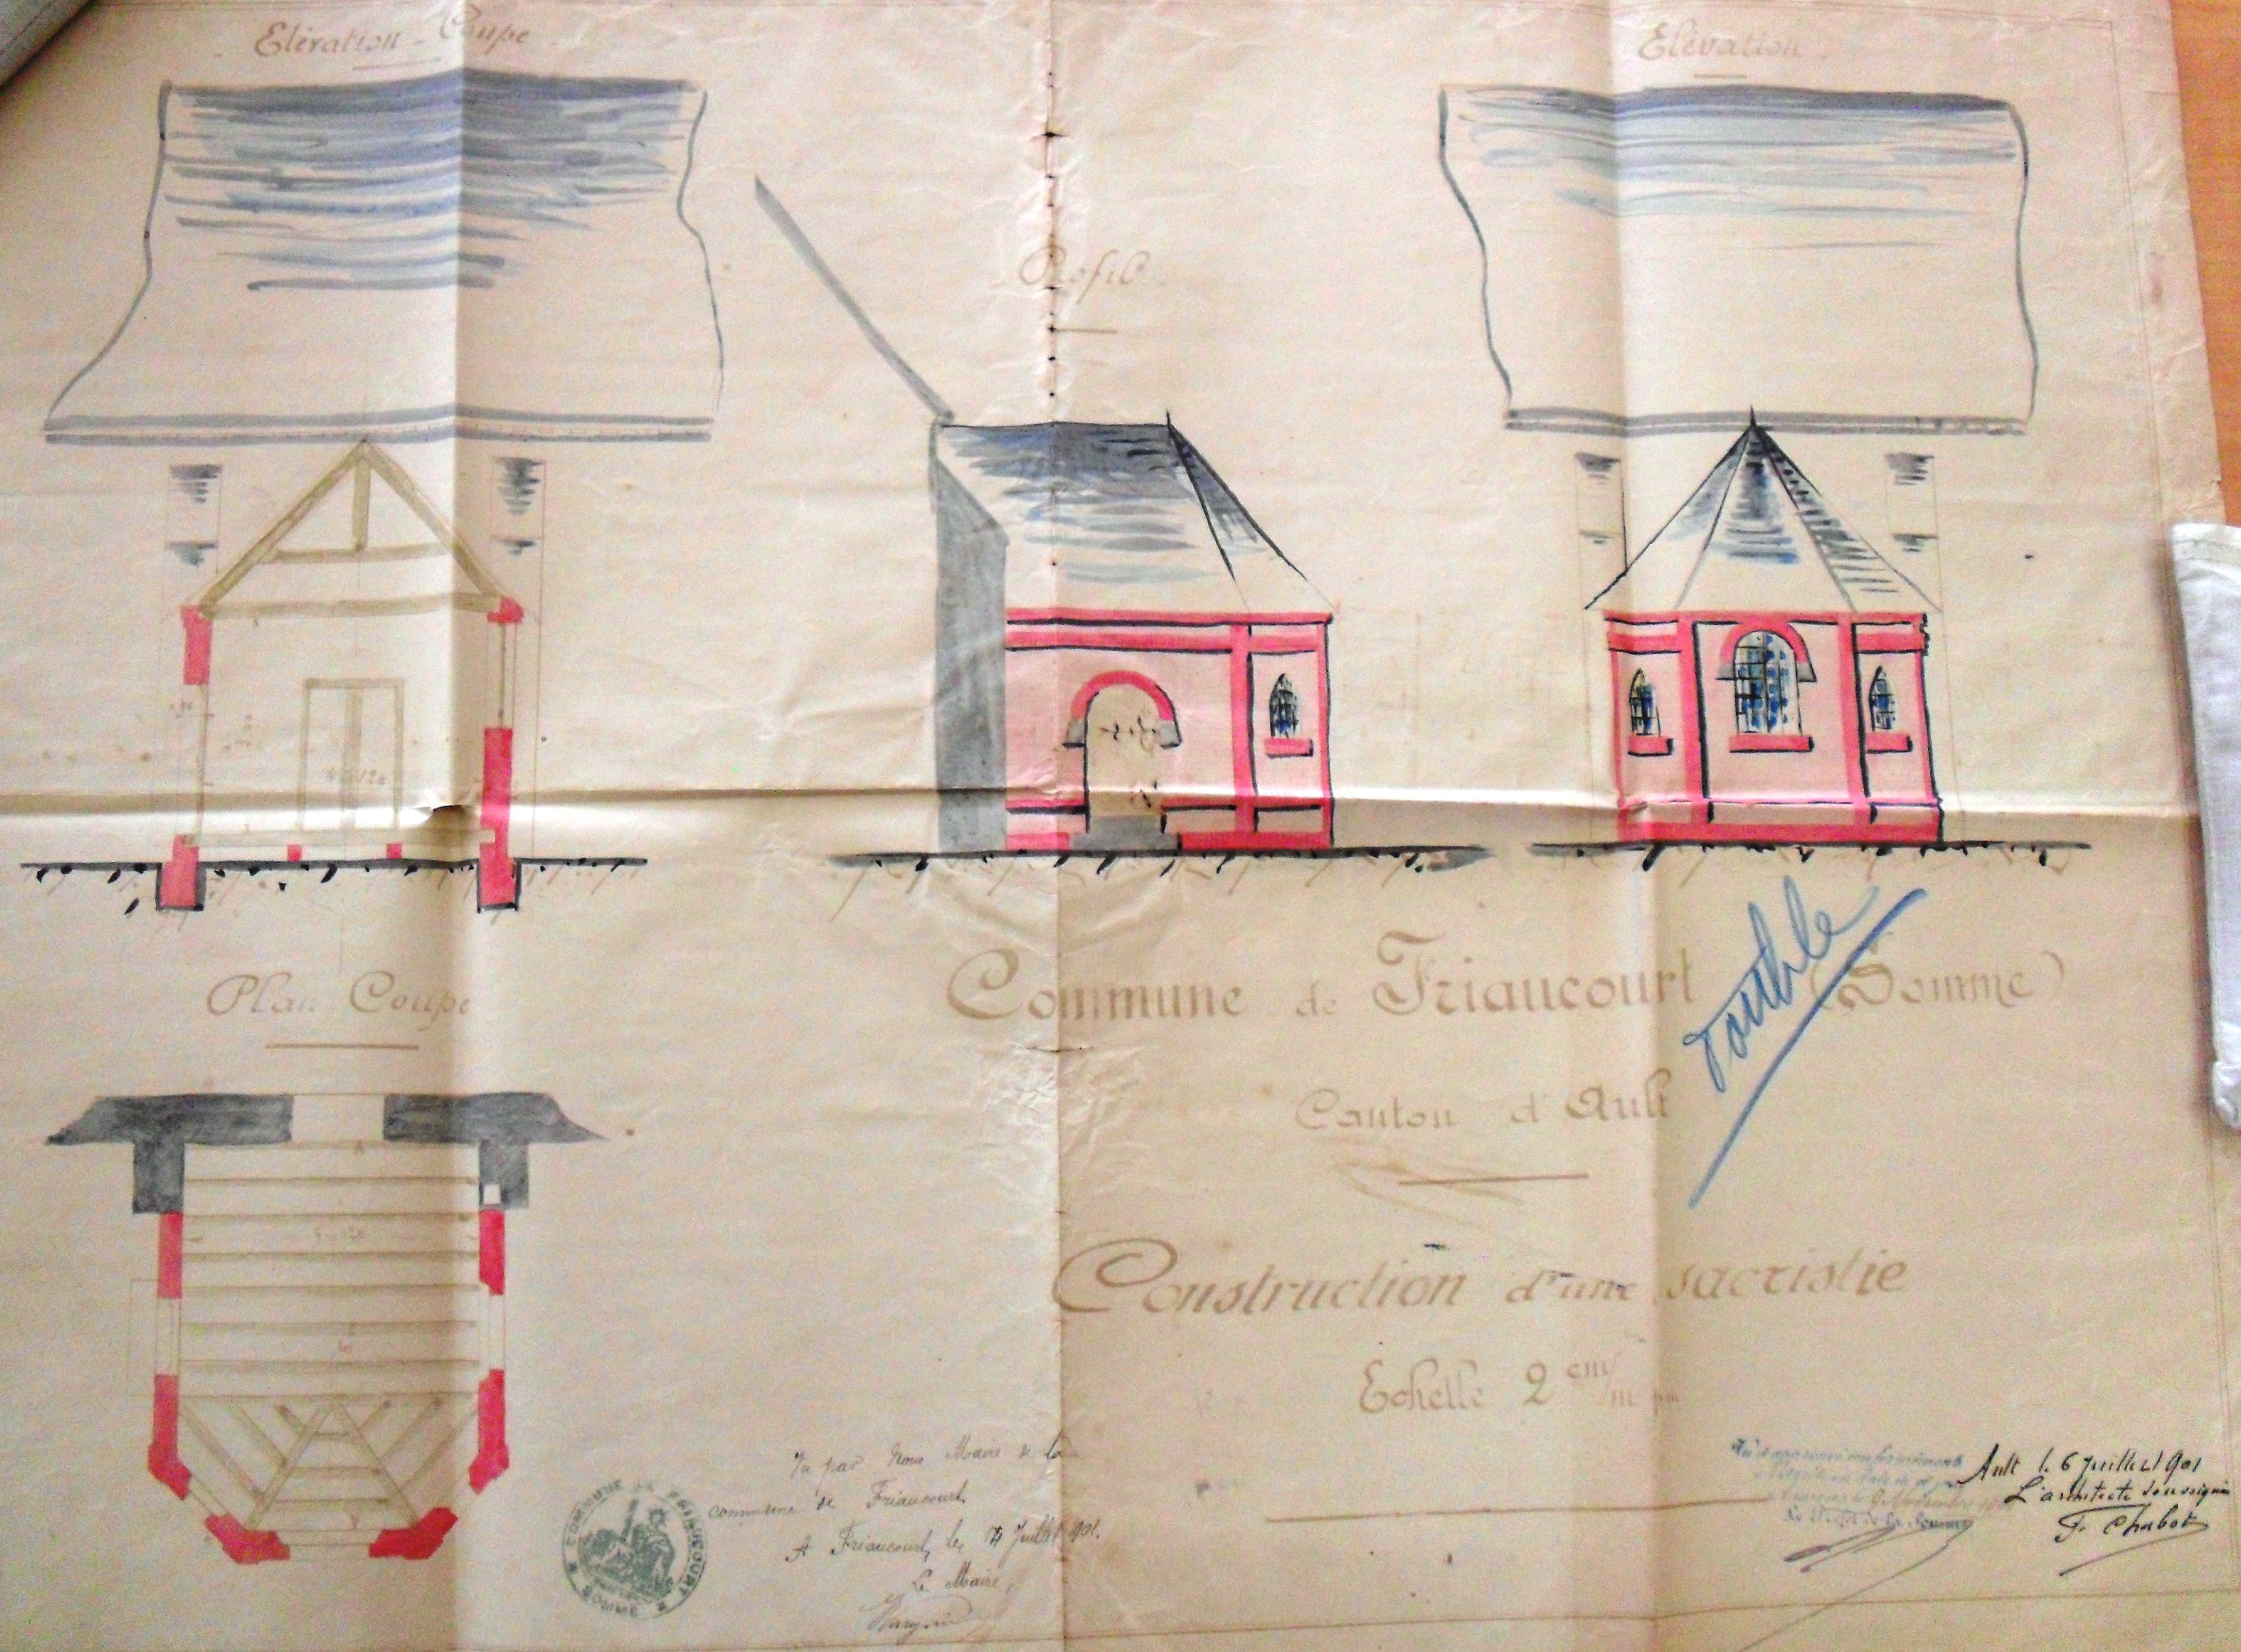 Elévation - Coupe
Elévation.
Profil
Plan Coupe
Commune de Friaucourt (Somme)
Double
Canton d'Ault
Construction d'une sacristie
Echelle 2 cm/m
Vu par Nous Maire de la
commune de Friaucourt
A Friaucourt, le Juillet 1901.
Le Maire,
COMMUNE DE FRIAUCOURT
SOMME
Le Préfet de la Somme
Ault le 6 Juillet 1901
L'architecte soussigné
F. Chabot